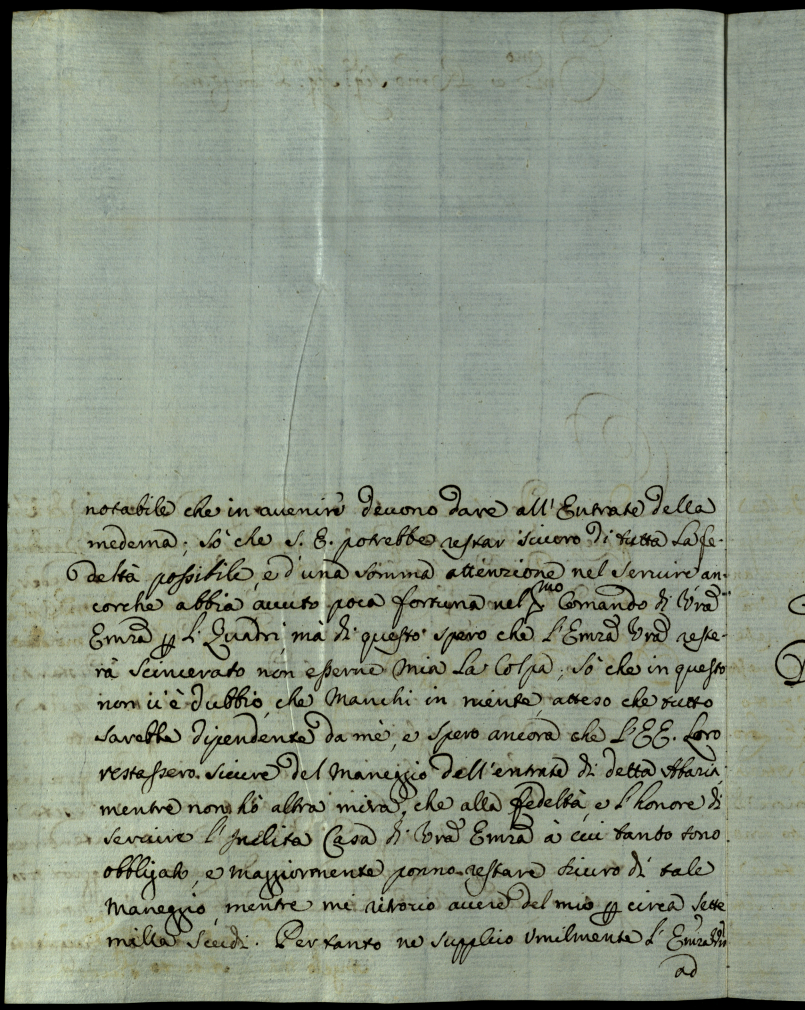 notabile che in auenire deuono dare all'Entrate della
medema; sò che S. E. potrebbe restar sicuro di tutta La fe-
deltà possibile, e d'una somma attenzione nel seruire an-
corche abbia auuto poca fortuna nel Pmo Comando di Vra
Emza p L'Quadri, mà di questo spero che L'Emza Vra reste-
rà scincerato non esserne Mia La Colpa; sò che in questo
non u'è dubbio, che Manchi in niente, atteso che tutto
sarebbe dipendente da mè, e spero ancora che L'EE. Loro
restassero sicure del Maneggio dell'entrate di detta
mentre non hò altra mira, che alla fedeltà, e l'honore di
seruire l'Inclita Casa di Vra Emza à cui tanto sono
obbligato, e maggiormente ponno restare sicuro di tale
Maneggio, mentre mi ritrouo auere del mio p circa sette
milla Scudi. Pertanto ne supplico Vmilmente L'Emza Vra
ad